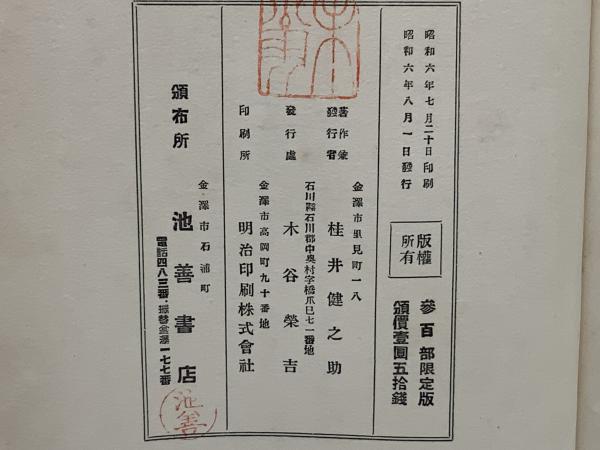 昭和六年七月二十日印刷
昭和六年八月一日發行
版權所有
參百部限定版
頒價壹圓五拾錢
著作兼發行者
金澤市里見町一八
桂井健之助
發行處
石川縣石川郡中奥村字橋爪巳七一番地
木谷榮吉
印刷所
金澤市高岡町九十番地
明治印刷株式會社
頒布所
金澤市石浦町
池善書店
電話四八三番・振替金澤一七七番
池善